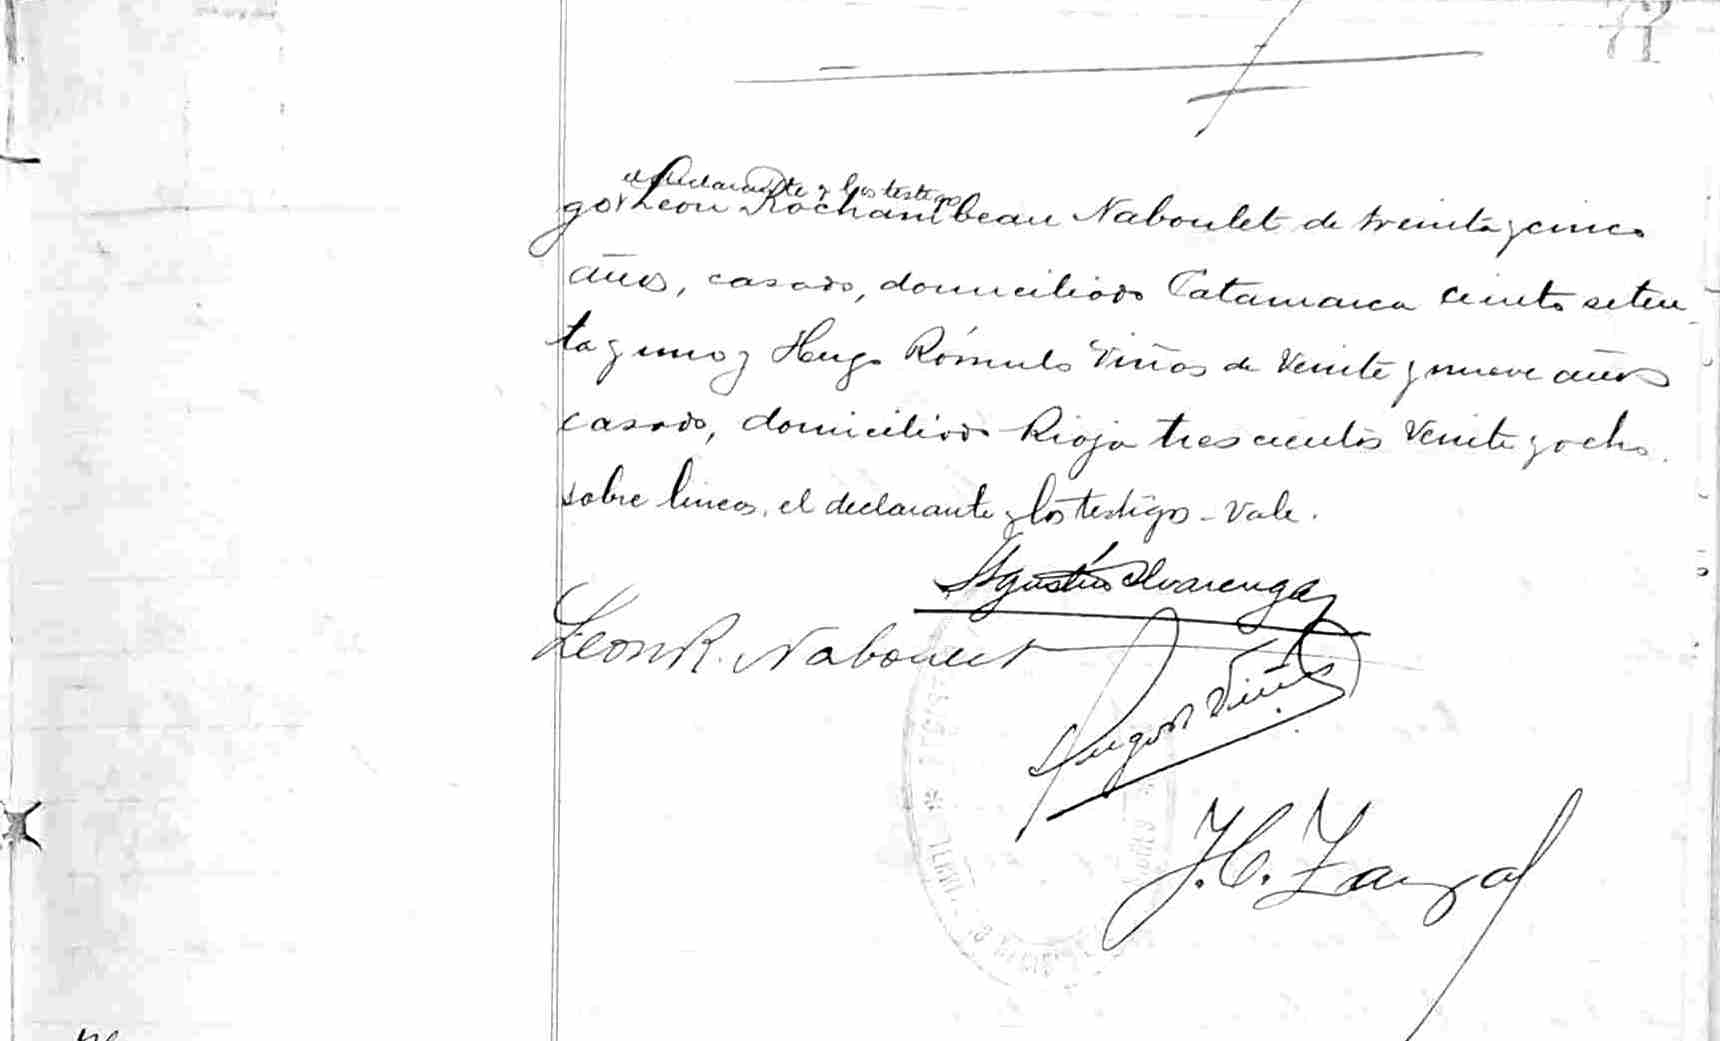 71
el declarante y los testigos
go, Leon Rochambeau Naboulet de treinta y cinco
años, casado, domiciliado Catamarca ciento seten_
ta y uno y Hugo Rómulo Viñas de veinte y nueve años
casado, domiciliado Rioja trescientos veinte y ocho.
sobre lineas, el declarante y los testigos - Vale.
Agustín Alvarenga
Leon R. Naboulet
Hugo R Viñas
J. C.